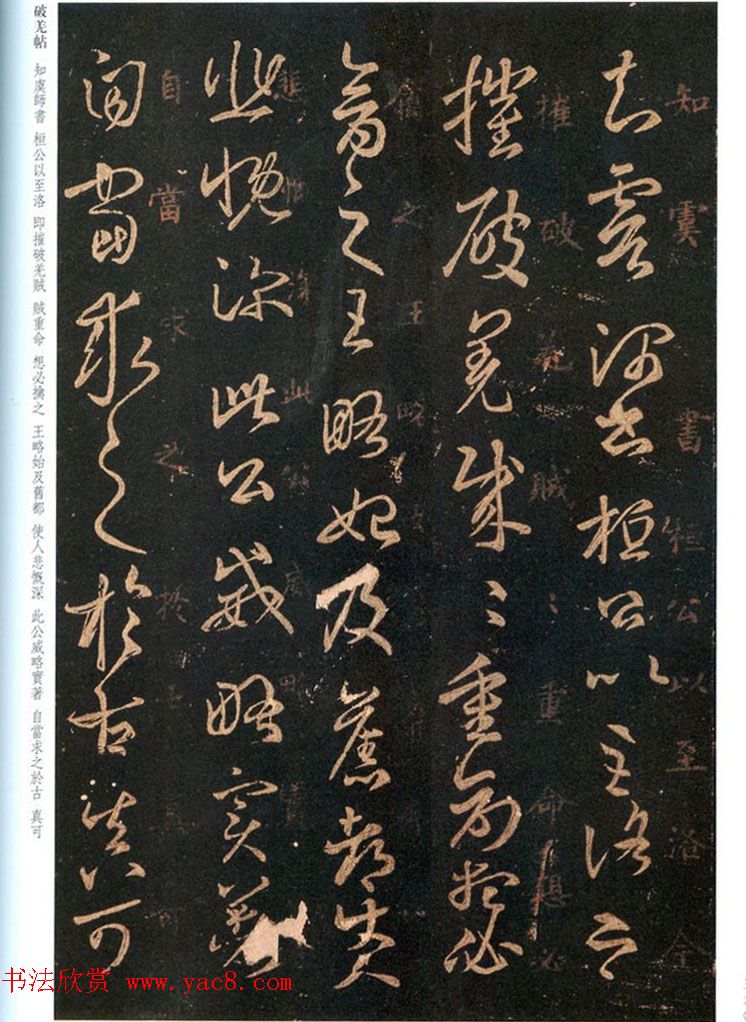 知虞書桓公以至洛
知虞帥書桓公以至洛即
摧破羌賊〻重命想必
摧破羌賊〻重命想必
之王略
禽之王略始及舊都使人
悲慨深此公威略
悲慨深此公威略實著
自當求之於
自當求之於古真可
破羌帖 知虞師書 桓公以至洛 即摧破羌賊 賊重命 想必擒之 王略始及舊都 使人悲慨深 此公威略實著 自當求之於古 真可
书法欣赏 www.yac8.com